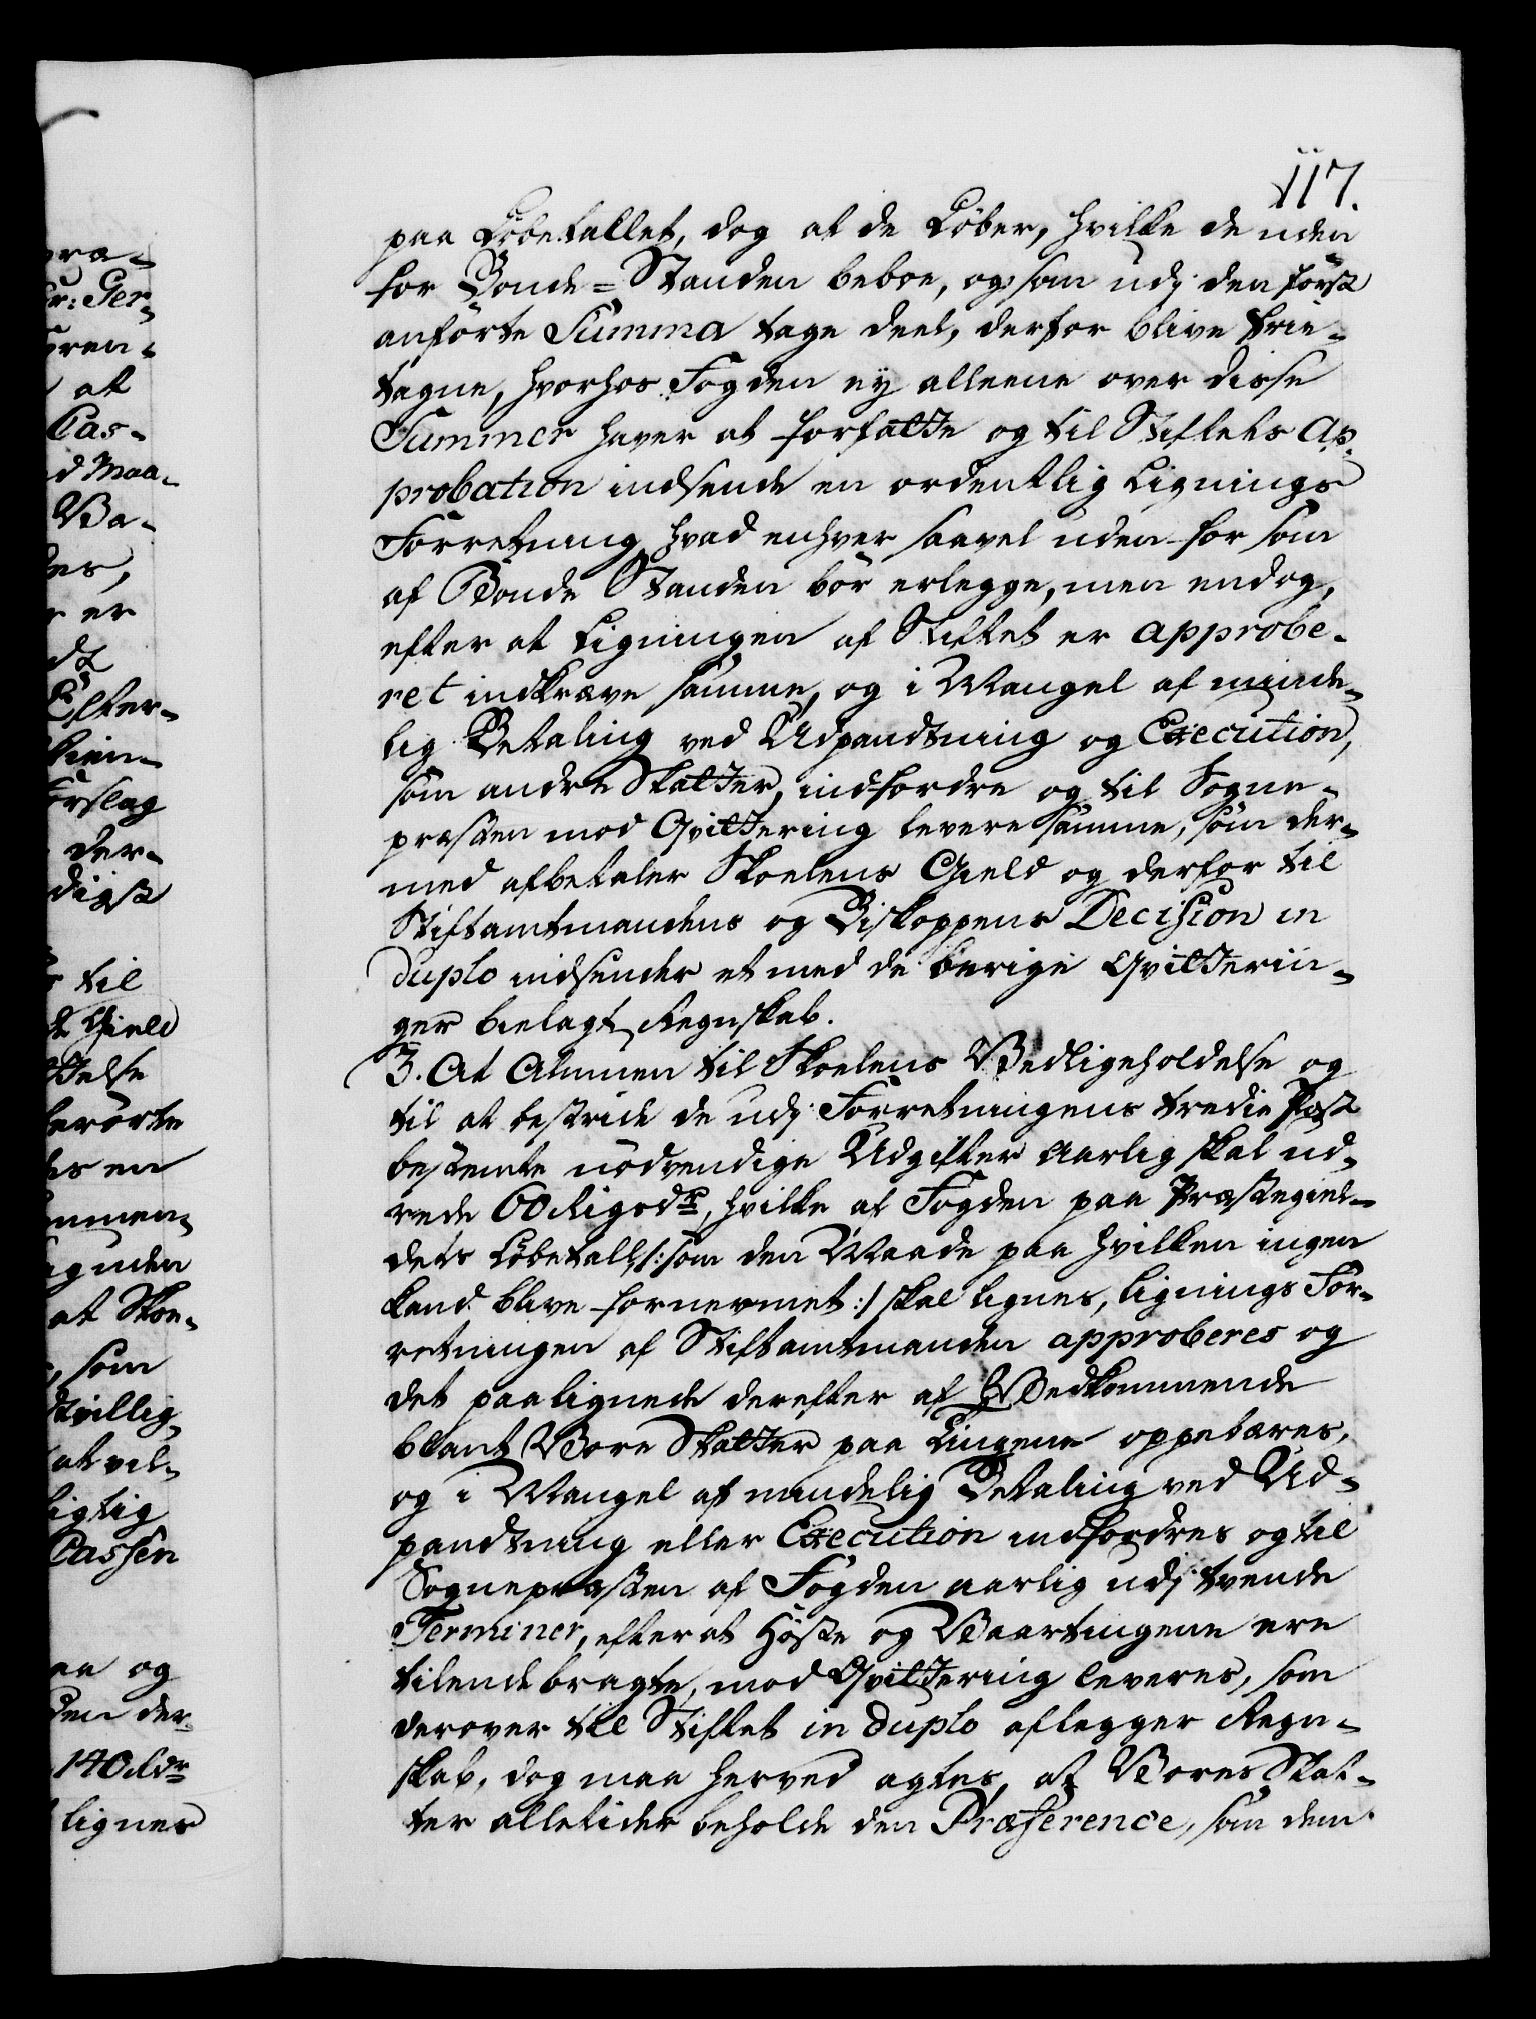 117.
paa Löbetallet, dog at de Löber, hvilke de uden
for Bonde-Standen beboe, og som udj den först
anförte Summa tage deel, derfor blive frie-
tagne, hvorhos Fogden ey alleene over disse
Summer haver at forfatte og til Stiftets Ap-
probation indsende en ordentlig Lignings
Forretning, hvad enhver saavel uden for som
af Bonde Standen bör erlegge, men endog,
efter at Ligningen af Stiftet er approbe-
ret indkræve samme, og i Mangel af minde-
lig Betaling ved Udpandtning og Execution,
som andre Skatter, indfordre og til Sogne-
præsten mod Qvittering levere samme, som der-
med afbetaler Skolens Gield og derfor til
Stiftamtmandens og Biskoppens Decision in
duplo indsender et med de övrige Qvitterin-
ger bielagt Regnskab.
3. At Almuen til Skolens Vedligeholdelse og
til at bestride de udj Forretningens tredie Post
bestemte nödvendige Udgifter aarlig skal ud-
rede 60 Rigsdr, hvilke af Fogden paa Præstegiel-
dets Löbetall /: som den Maade paa hvilken ingen
kand blive fornermet :/ skal lignes, Lignings For-
retningen af Stiftamtmanden approberes og
det paalignede derefter af Vedkommende
blant Vore Skatter paa Tingene oppebæres,
og i Mangel af mindelig Betaling ved Ud-
pandtning eller Execution indfordres og til
Sognepræsten af Fogden aarlig udj tvende
Terminer, efter at Höste og Vaartingene ere
tilendebragte, mod Qvittering leveres, som
derover til Stiftet in duplo aflegger Regn-
skab, dog maa herved agtes, at Vores Skat-
ter alletider beholde den Præference, som dem
pra-
Cr: Ger-
at
Cas-
d Maa-
Ba-
er
Efter-
Forslag
der-
digst
til
Gield
berörte
en
at Skoe-
som
og
den der-
140 Rdr
ligner